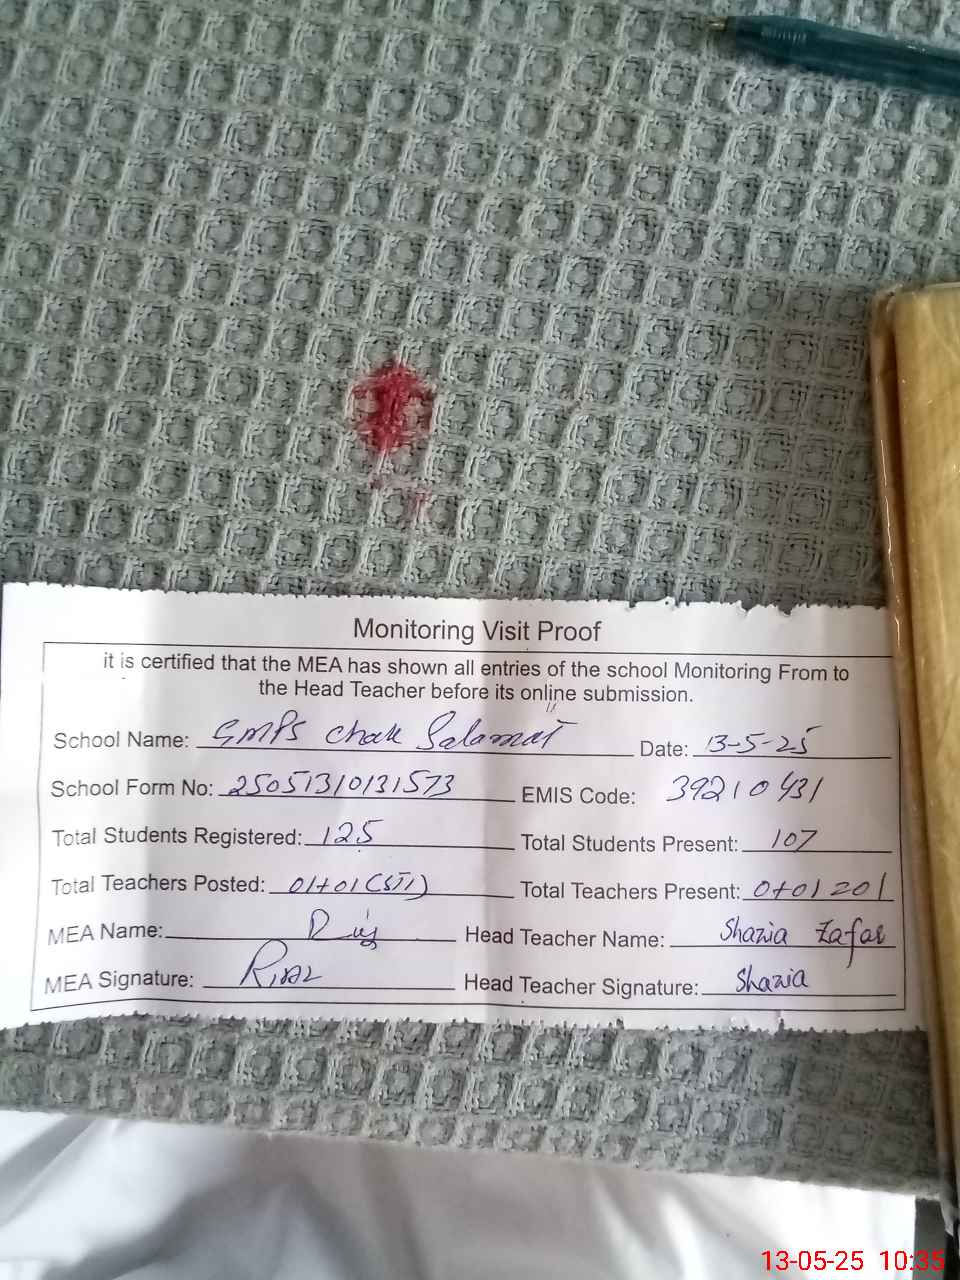 Monitoring Visit Proof
it is certified that the MEA has shown all entries of the school Monitoring From to
the Head Teacher before its online submission.
School Name: GMPS Chak Salamat Date: 13-5-25
School Form No: 25051310131573 EMIS Code: 39210431
Total Students Registered: 125 Total Students Present: 107
Total Teachers Posted: 01+01(STI) Total Teachers Present: 0+01 201
MEA Name: Head Teacher Name: Shazia Zafar
MEA Signature: Riaz Head Teacher Signature: Shazia
13-05-25 10:35